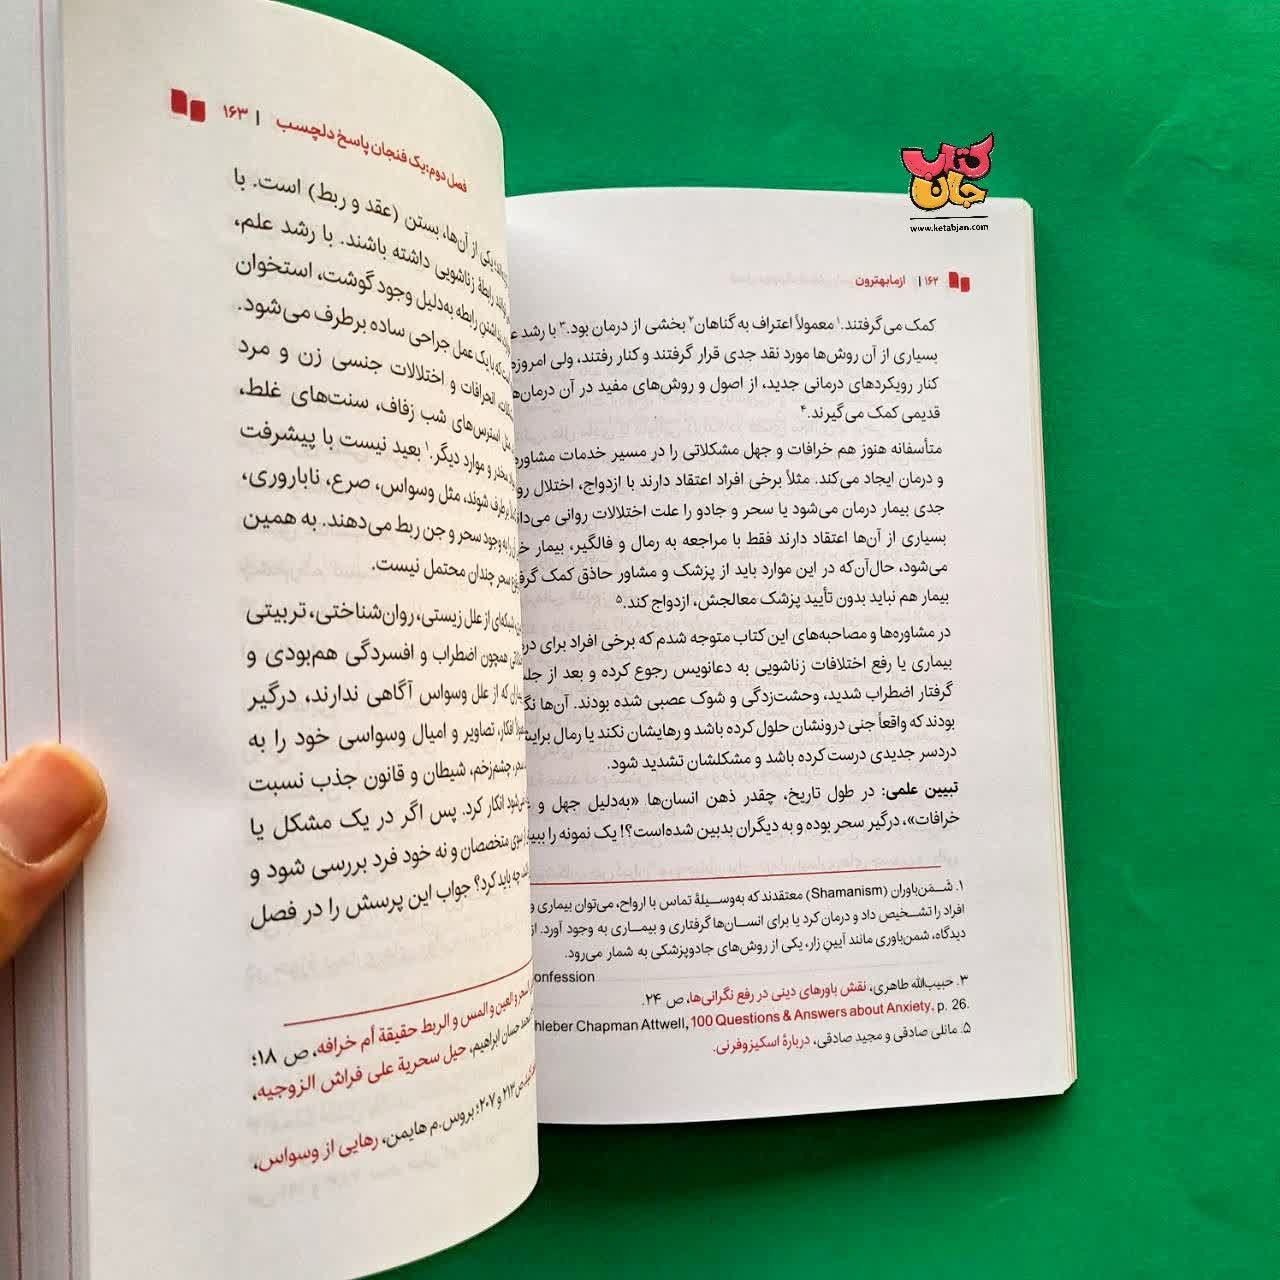 کتاب
جان
www.ketabjan.com
۱۶۲ | ازمابهترون
کمک می‌گرفتند.۱ معمولاً اعتراف به گناهان۲ بخشی از درمان بود.۳ با رشد
بسیاری از آن روش‌ها مورد نقد جدی قرار گرفتند و کنار رفتند، ولی امروزه
کنار رویکردهای درمانی جدید، از اصول و روش‌های مفید در آن درمان‌ها
قدیمی کمک می‌گیرند.۴
متأسفانه هنوز هم خرافات و جهل مشکلاتی را در مسیر خدمات مشاوره
و درمان ایجاد می‌کند. مثلاً برخی افراد اعتقاد دارند با ازدواج، اختلال
جدی بیمار درمان می‌شود یا سحر و جادو را علت اختلالات روانی
بسیاری از آن‌ها اعتقاد دارند فقط با مراجعه به رمال و فالگیر، بیمار
می‌شود، حال‌آن‌که در این موارد باید از پزشک و مشاور حاذق کمک
بیمار هم نباید بدون تأیید پزشک معالجش، ازدواج کند.۵
در مشاوره‌ها و مصاحبه‌های این کتاب متوجه شدم که برخی افراد برای
بیماری یا رفع اختلافات زناشویی به دعانویس رجوع کرده و بعد از
گرفتار اضطراب شدید، وحشت‌زدگی و شوک عصبی شده بودند. آن‌ها
بودند که واقعاً جنی درونشان حلول کرده باشد و رهایشان نکند یا رمال
دردسر جدیدی درست کرده باشد و مشکلشان تشدید شود.
تبیین علمی: در طول تاریخ، چقدر ذهن انسان‌ها «به‌دلیل جهل و
خرافات»، درگیر سحر بوده و به دیگران بدبین شده‌است؟! یک نمونه را
۱. شَمَن‌باوران (Shamanism) معتقدند که به‌وسیلهٔ تماس با ارواح، می‌توان بیماری و
افراد را تشخیص داد و درمان کرد یا برای انسان‌ها گرفتاری و بیماری به وجود آورد. از
دیدگاه، شمن‌باوری مانند آیین زار، یکی از روش‌های جادوپزشکی به شمار می‌رود.
onfession
۳. حبیب‌الله طاهری، نقش باورهای دینی در رفع نگرانی‌ها، ص ۲۴.
hleber Chapman Attwell, 100 Questions & Answers about Anxiety, p. 26.
۵. مانلی صادقی و مجید صادقی، دربارهٔ اسکیزوفرنی.
فصل دوم: یک فنجان پاسخ دلچسب | ۱۶۳
یکی از آن‌ها، بستن (عقد و ربط) است. با
رابطهٔ زناشویی داشته باشند. با رشد علم،
داشتن رابطه به‌دلیل وجود گوشت، استخوان
که با یک عمل جراحی ساده برطرف می‌شود.
انحرافات و اختلالات جنسی زن و مرد
مثل استرس‌های شب زفاف، سنت‌های غلط،
مخدر و موارد دیگر.۱ بعید نیست با پیشرفت
برطرف شوند، مثل وسواس، صرع، ناباروری،
را به وجود سحر و جن ربط می‌دهند. به همین
سحر چندان محتمل نیست.
شبکه‌ای از علل زیستی، روان‌شناختی، تربیتی
همچون اضطراب و افسردگی هم‌بودی و
که از علل وسواس آگاهی ندارند، درگیر
افکار، تصاویر و امیال وسواسی خود را به
سحر، چشم‌زخم، شیطان و قانون جذب نسبت
انکار کرد. پس اگر در یک مشکل یا
سوی متخصصان و نه خود فرد بررسی شود و
چه باید کرد؟ جواب این پرسش را در فصل
السحر و العین و المس و الربط حقیقة أم خرافه، ص ۱۸؛
حسان ابراهیم، حیل سحریة علی فراش الزوجیه،
ص۲۱۳ و ۲۰۷؛ بروس.م هایمن، رهایی از وسواس،